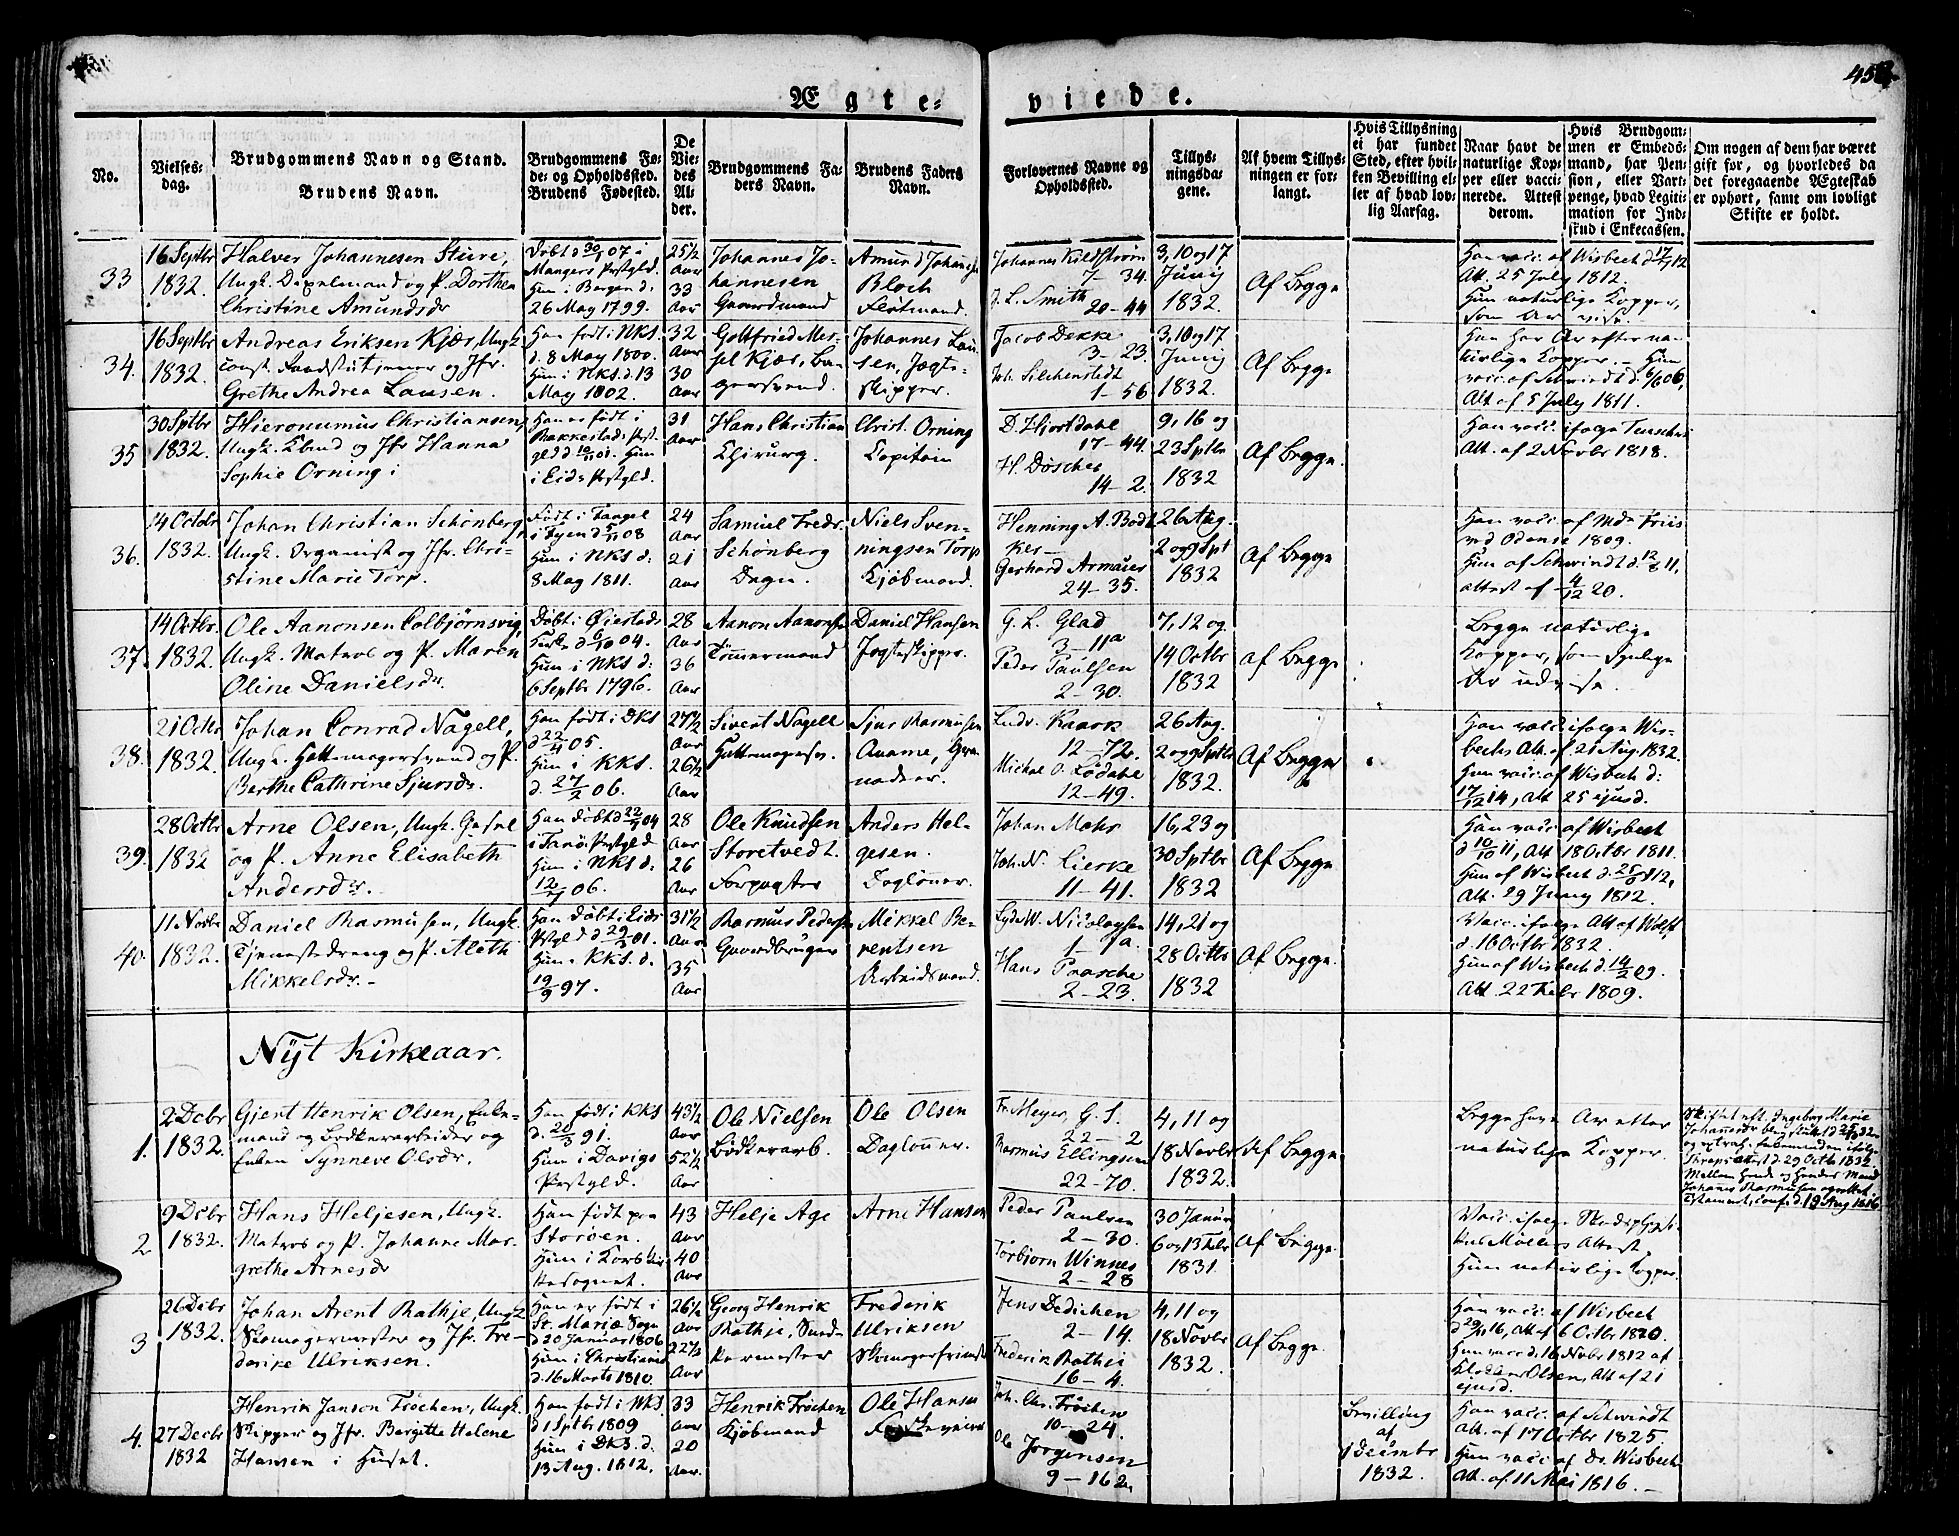 Ægte-
viede.
No.
Vielses-
dag.
Brudgommens Navn og Stand.
Brudens Navn.
Brudgommens Fø-
de- og Opholdsted.
Brudens Fødested.
De
Vie-
des
Al-
der.
Brudgommens Fa-
ders Navn.
Brudens Faders
Navn.
Forlovernes Navne og
Opholdsted.
Tillys-
ningsda-
gene.
Af hvem Tillys-
ningen er for-
langt.
Hvis Tillysning
ei har fundet
Sted, efter hvil-
ken Bevilling el-
ler af hvad lov-
lig Aarsag.
Naar havt de
naturlige Kop-
per eller vacci-
nerede. Attest
derom.
Hvis Brudgom-
men er Embeds-
mand, har Pen-
sion, eller Vart-
penge, hvad Legiti-
mation for Ind-
skud i Enkecassen.
Om nogen af dem har været
gift for, og hvorledes da
det foregaaende Ægteskab
er ophørt, samt om lovligt
Skifte er holdt.
33
16 Septbr
1832.
Halver Johannesen Sture,
Ungk. Dexelmand og P. Dorthea
Christine Amundsdr
Døbt d 30/1 07 i
Mangers Prstgld.
Hun i Bergen d.
26 May 1799.
25 1/2
Aar
33
Aar
Johannes Jo-
hannesen
Gaardmand
Amund Johannes
Bloch
Flotmand.
Johannes Kildstrøm
7- 34.
J. L. Smith
20-44
3, 10 og 17
Juny
1832.
Af Begge
Han vac. af Wisbech d 17/7 12
Att. 25 July 1812.
Hun naturlige Kopper,
som Ar vise.
34.
16 Septbr
1832.
Andreas Eriksen Kjær, Ungk.
const. Landstutjener og Jfr.
Grethe Andrea Lausen.
Han født i NKS
d. 8 May 1800.
Hun i NKS. d. 13
May 1802.
32
Aar
30
Aar
Gottfried Mes-
sel Kjær, Ban-
gersvend.
Johannes Lau-
sen, Jagts-
skipper.
Jacob Dekke
3-23.
Joh. Silchenstedt
1-56
3, 10 og 17
Juny
1832.
Af Begge
Han har Ar efter na-
turlige Kopper. - Hun
vacc. af Schwindt d. 6/6 06,
Att. af 5 July 1811.
35
30 Sptbr
1832.
Hieronumus Christiansen,
Ungk. Kbmd og Jfr Hanna
Sophie Orning
Han er født i
Rakkestads Prst-
gld d 10/1 01. Hun
i Eids Prstgld.
31
Aar
Hans Christian
Chirurg.
Christ. Orning
Capitain
D. Hjortdahl
17-44.
H. Døscher
14-2.
9, 16 og
23 Sptbr
1832
Af Begge.
Han vacc. ifølge
Att. af 2 Novbr 1818.
36.
14 Octobr
1832.
Johan Christian Schønberg,
Ungk. Organist og Jfr. Chri-
stine Marie Torp.
Født i Faagel
i Fyen d 5/11 08
Hun i NKS d:
8 May 1811.
24
Aar
21
Aar
Samuel Fredr.
Schønberg
Degn.
Niels Sven-
ningsen Torp
Kjøbmand.
Henning A. Bødt-
ker-
Gerhard Armauer
24-35.
26 Aug.
2 og 9 Spt
1832
Af Begge
Han vacc. af Md. Friis
ved Odense 1809.
Hun af Schwindt d. 12/8 11,
attest af 4/12 20.
37.
14 Octbr.
1832.
Ole Aanonsen Colbjørnsvig,
Ungk. Matros og P. Maren
Oline Danielsdr.
Døbt i Øiestads
Kirke d 6/10 04.
Hun i NKS d:
6 Septbr 1796.
28
Aar
36
Aar
Aanon Aanonsen
Tømmermand
Daniel Hansen
Jagteskipper.
G. L. Glad
3-11a
Peder Paulsen
2-30.
7, 12 og
14 Octbr
1832
af Begge
Begge naturlige
Kopper, som synlige
Ar udvise.
38.
21 Octbr
1832.
Johan Conrad Nagell,
Ungk. Hattemagersvend og P.
Berthe Cathrine Sjursdr.
Han født i DKS
d 22/4 05.
Hun i KKS.
d. 27/2 06.
27 1/2
Aar
26 1/2
Aar
Sivert Nagell
Hattemagersv.
Sjur Rasmusen
Aname, Gre-
nadeer.
Ludv. Kaark
12-72.
Michal O. Lødahl
12-49.
26 Aug.
2 og 9 Sptbr
1832.
Af Begge
Han vacc. ifølge Wis-
bechs Att. af 21 Aug. 1832.
Hun vacc. af Wisbech d:
17/12 14, Att 25 ejusd.
39.
28 Octbr
1832
Arne Olsen, Ungk. Gesel
og P. Anne Elisabeth
Andersdr.
Han døbt d 22/1 04
i Fanø Prstgld
Hun i NKS d.
12/1 06.
28
Aar
26
Aar
Ole Knudsen
Storetvedt.
Forpagter
Anders Hel-
gesen.
Dagløner.
Johan Mohr
Joh. N. Cierke
11-41.
16, 23 og
30 Sptbr
1832
Af Begge
Han vacc. af Wisbech
d 10/10 11, Att 18 Octbr 1811.
Hun af Wisbech d. 25/6 12,
Att. 29 Juny 1812.
40.
11 Novbr
1832.
Daniel Rasmusen, Ungk.
Tjenestedreng og P. Aleth
Mikkelsdr.
Han døbt i Eids
Prstgld d 29/3 01.
Hun i KKS. d.
19/9 97.
31 1/2
Aar
35
Aar
Rasmus Pedersen
Gaardbruger
Mikkel Be-
rentsen
Arbeidsmand.
Lyder W. Nicolaysen
1-7a.
Hans Prasche
2-23.
14, 21 og
28 Octbr
1832
Af Begge.
Vacc. ifølge Att af Wolff
d. 10 Octbr 1832.
Hun af Wisbech d. 14/2 09.
Att. 22 Febr 1809.
Nyt Kirkeaar.
1.
2 Dcbr
1832.
Gjert Henrik Olsen, Enke-
mand og Bødkerarbeider og
Enken Synneve Olsdr.
Han født i KKS
d. 20/3 91.
Hun i Davigs
Prstgld.
43 1/2
Aar
52 1/2
Aar
Ole Nielsen
Bødkerarb.
Ole Olsen
Dagløner.
Fr. Meyer, G. S.
22-2
Rasmus Ellingsen
22-70.
4, 11 og
18 Novbr
1832.
Af Begge
Begge have Ar efter
naturlige Kopper.
Skiftet eft. Ingeborg Marie
Johannesdr
d 29 Octbr 1832.
Mellem Hende og Hendes Mand
Johannes Rasmusen oprettet
Testament, conf. d. 19 Aug 1816
2
9 Dcbr
1832.
Hans Heljesen, Ungk.
Matros og P. Johanne Mar-
grethe Arnesdr
Han født paa
Storøen.
Hun i Korskir-
kesognet.
43
Aar
40
Aar
Helje Age
Arne Hansen
Peder Paulsen
2-30.
Torbiørn Winnes
2-28
30 Januar
6 og 13 Febr
1831.
Af Begge.
Vacc. ifølge
Møllers Attest
Hun naturlige Kopper.
3
26 Dcbr
1832.
Johan Arent Rathje, Ungk.
Skomagermester og Jfr. Fre-
derike Ulriksen.
Han er født i
St. Mariæ Sogn
d 20 Januar 1806
Hun i Christiania
d. 16 Marts 1810.
26 1/2
Aar
22 1/2
Aar
Georg Henrik
Rathje, Sned-
kermester
Frederik
Ulriksen
Skomagersvend
Jens Dedichen
2-14.
Frederik Rathje
16-4.
4, 11 og
18 Novbr
1832.
Af Begge.
Han vacc. af Wisbech
d 29/9 16, Att af 6 Octbr 1820.
Hun vacc d. 16 Novbr 1812 af
Klokker Olsen, Att af 21
ejusd.
4.
27 Decbr
1832
Henrik Janson Frøchen, Ungk.
Skipper og Jfr. Bergitte Helene
Hansen i Huset.
Han født i NKS.
d 1 Sptbr 1809
Hun i DKS. d.
13 Aug. 1812.
33
Aar
20
Aar.
Henrik Frøchen
Kjøbmand
Ole Hansen
Joh. Chr. Frøchen
10-24.
Ole Jørgensen
9-162.
Bevilling
af
1 Decembr
1832.
Han vacc. af Schwindt
Att. af 17 Octbr 1825
Hun vacc. af Dr. Wisbech
Att. af 11 Mai 1816. -